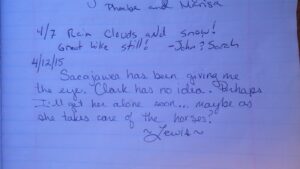 Phoebe and Marisa
4/7 Rain Clouds and snow!
Great hike still! -John & Sarah
4/12/15
Sacajawea has been giving me
the eye. Clark has no idea. Perhaps
I'll get her alone soon... maybe as
she takes care of the horses?
~Lewis~